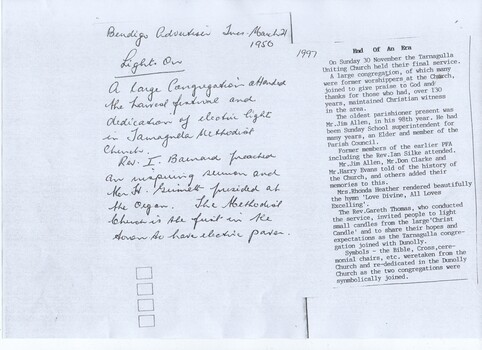 Bendigo Advertiser Tues. March 21
1950
Lights On
A large Congregation attended
the harvest festival and
dedication of electric light
in Tarnagulla Methodist
Church.
Rev. I. Barnard preached
an inspiring sermon and
Mr. H. presided at
the Organ. The Methodist
Church is the first in the
town to have electric power.
1997
End Of An Era
On Sunday 30 November the Tarnagulla
Uniting Church held their final service.
A large congregation, of which many
were former worshippers at the Church,
joined to give praise to God and
thanks for those who had, over 130
years, maintained Christian witness
in the area.
The oldest parishioner present was
Mr.Jim Allen, in his 98th year. He had
been Sunday School superintendent for
many years, an Elder and member of the
Parish Council.
Former members of the earlier PFA
including the Rev.Ian Silke attended.
Mr.Jim Allen, Mr.Don Clarke and
Mr.Harry Evans told of the history of
the Church, and others added their
memories to this.
Mrs.Rhonda Heather rendered beautifully
the hymn 'Love Divine, All Loves
Excelling'.
The Rev.Gareth Thomas, who conducted
the service, invited people to light
small candles from the large'Christ
Candle' and to share their hopes and
expectations as the Tarnagulla congre-
gation joined with Dunolly.
Symbols - the Bible, Cross,cere-
monial chairs, etc. weretaken from the
Church and re-dedicated in the Dunolly
Church as the two congregations were
symbolically joined.